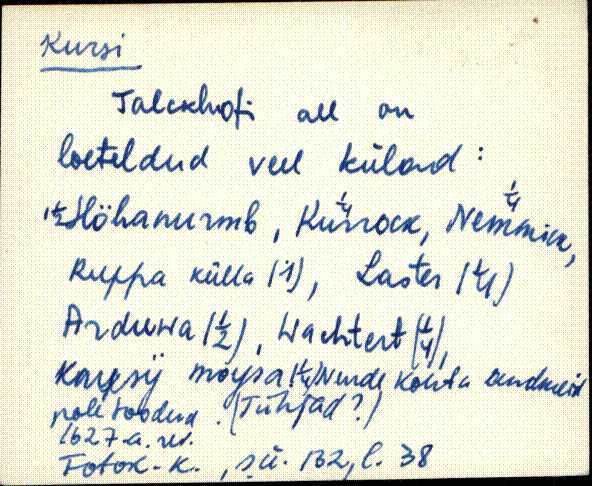 Kursi
Talckhofi all on
loeteldud veel külad:
1½ Höhanurmb, Kurrock, ¼ Nemmick, ¼
Ruppa külla (1), Laster (¼)
Arduwa (½), Wachtert (¼),
moysa (¼) Nende kohta andmeid
pole toodud. (Tühjad?)
1627-a. rev.
Fotok-k., sü. 162, l. 38